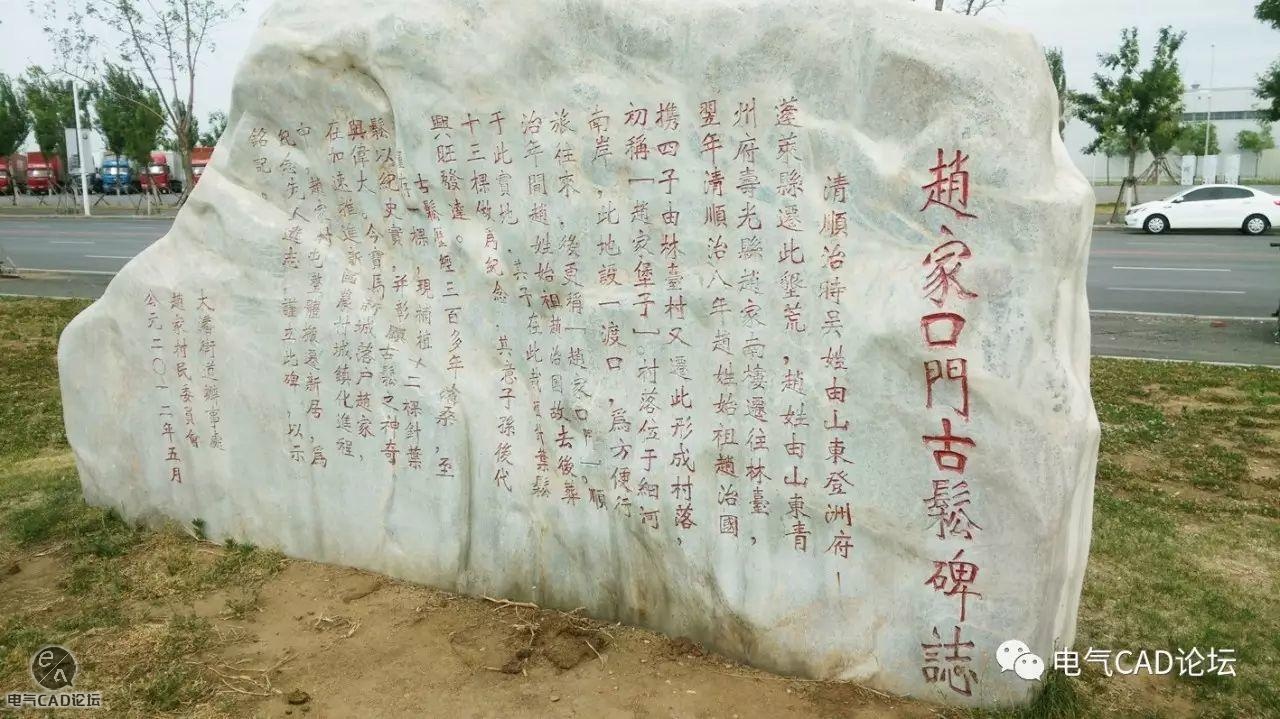 趙家口門古鬆碑誌
清順治時吳姓由山東登洲府
蓬萊縣遷此墾荒，趙姓由山東青
州府壽光縣趙家南樓遷往林臺，
翌年清順治八年趙姓始祖趙治國
携四子由林臺村又遷此形成村落，
初稱「趙家堡子」村落位于細河
南岸，此地設一渡口，爲方便行
旅往來，後更稱「趙家口門」順
治年間趙姓始祖趙治國故去後葬
于此寶地，其子在此栽植針葉鬆
十三棵做爲紀念，其意子孫後代
興旺發達。
古鬆歷經三百多年滄桑，至
一棵，現補植十二棵針葉
鬆以紀史實，并彰顯古鬆之神奇
與偉大。今寶馬新城落户趙家，
在加速推進新區農村城鎮化進程
中，趙家村屯整體搬遷新居，爲
紀念先人遺志，謹立此碑，以示
銘記。
大青街道辦事處
趙家村民委員會
公元二〇一二年五月
电气CAD论坛
电气CAD论坛